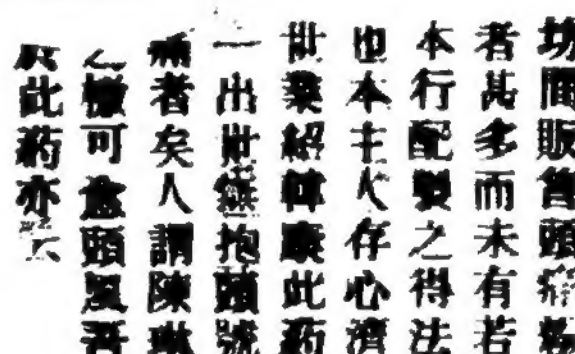 坊間販賣頭痛粉
者甚多而未有若
本行配製之得法
也本主人存心濟
世業紹韓康此葯
一出世無抱頭號
痛者矣人謂陳琳
之檄可愈頭風吾
於此葯亦云